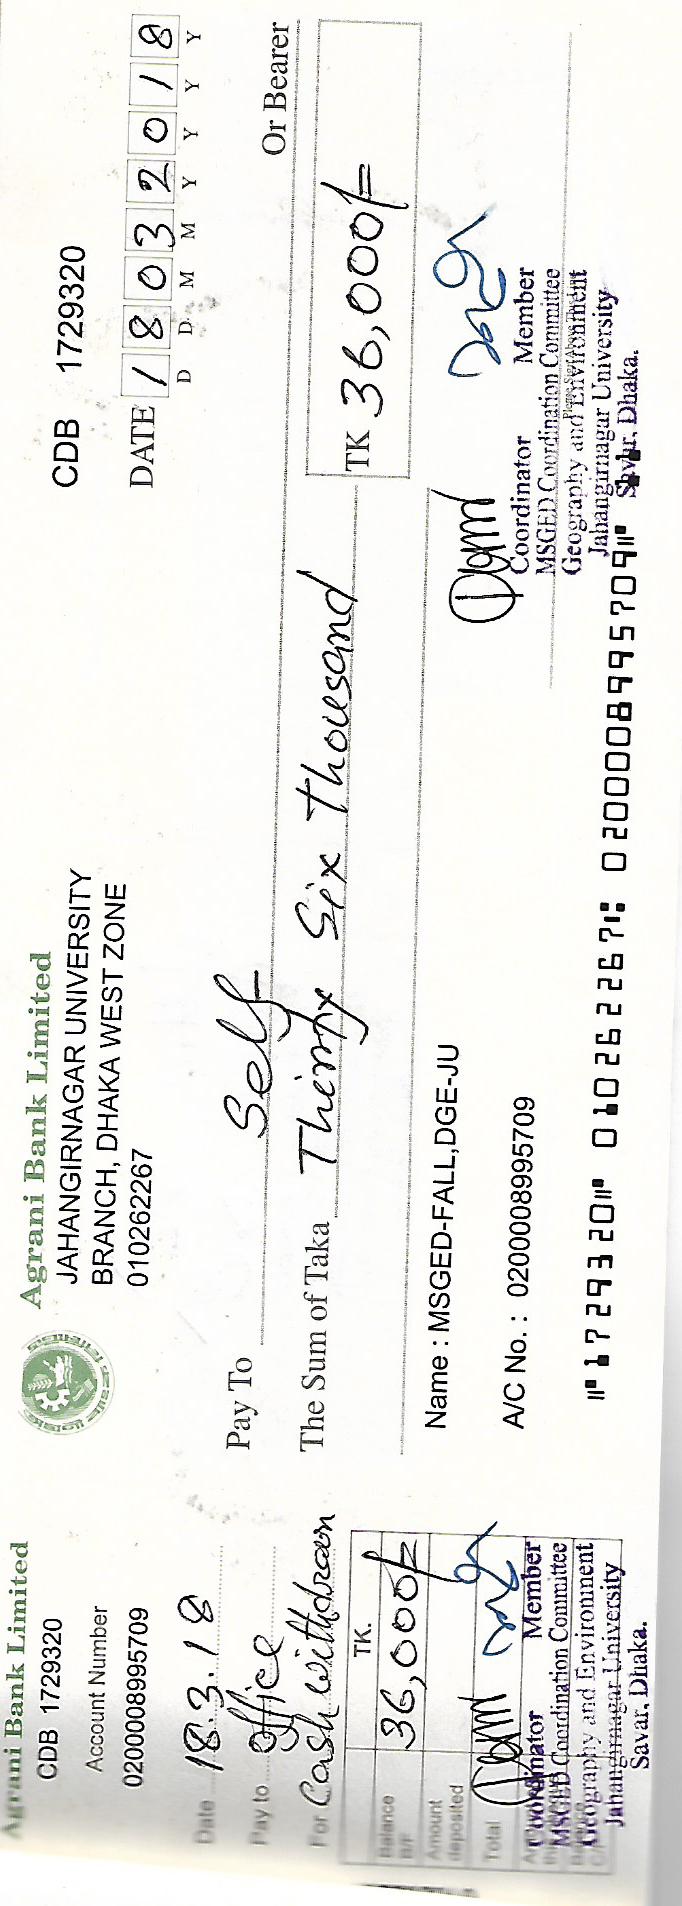 Agrani Bank Limited
CDB 1729320
Account Number
0200008995709
Date 18.3.18
Pay to office
For Cash withdrawn
TK.
Balance B/F 36,000/=
Amount deposited
Total
Coordinator Member
MSGED Coordination Committee
Geography and Environment
Jahangirnagar University
Savar, Dhaka.
Agrani Bank Limited
JAHANGIRNAGAR UNIVERSITY
BRANCH, DHAKA WEST ZONE
010262267
CDB 1729320
DATE 18032018
D D M M Y Y Y Y
Pay To Self Or Bearer
The Sum of Taka Thirty Six Thousand
TK 36,000/=
Name : MSGED-FALL,DGE-JU
A/C No. : 0200008995709
Coordinator Member
MSGED Coordination Committee
Geography and Environment
Jahangirnagar University
Savar, Dhaka.
⑈1729320⑈ 010262267⑆ 0200008995709⑈